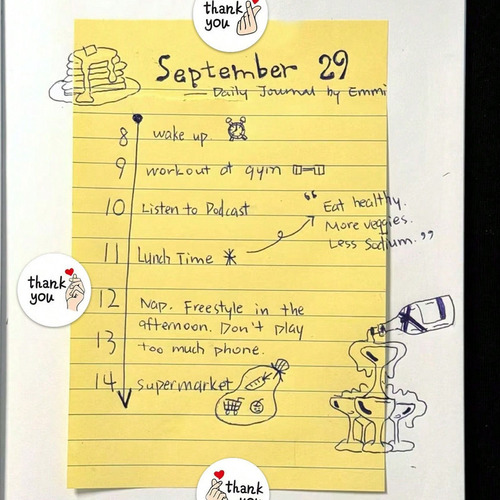 thank
you
September 29
Daily Journal by Emmi
8 wake up.
9 workout at gym
10 Listen to Podcast
“ Eat healthy.
More veggies.
Less Sodium. ”
11 Lunch Time
thank
you
12 Nap. Freestyle in the
afternoon. Don't play
13 too much phone.
14 supermarket
thank
you